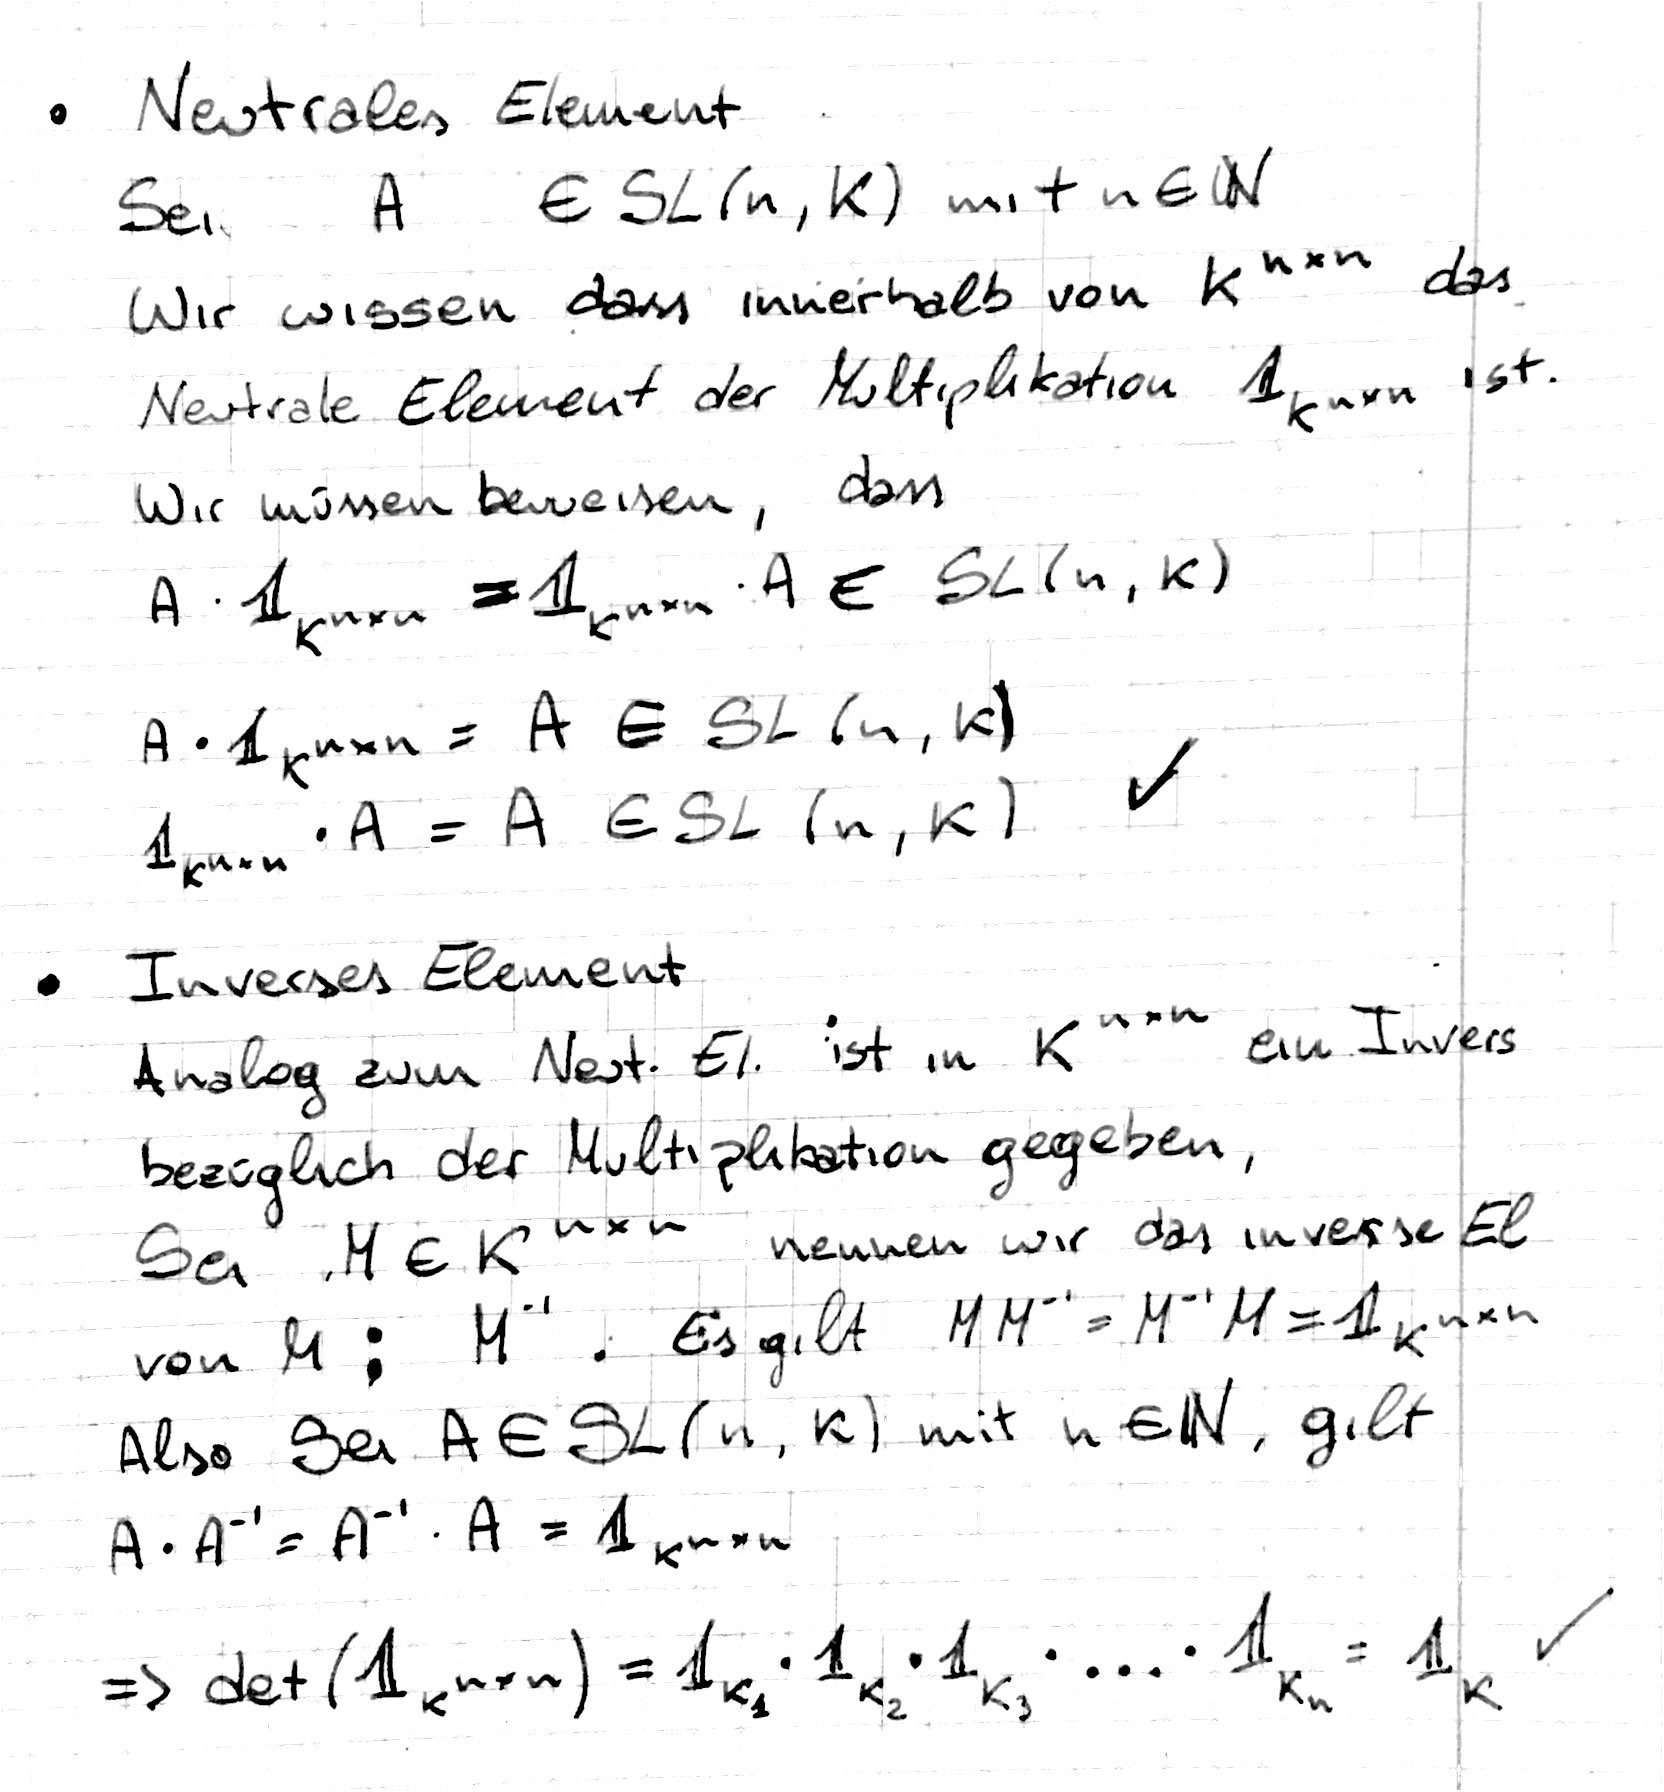 • Neutrales Element
Sei A ∈ SL(n, K) mit n ∈ ℕ
Wir wissen dass innerhalb von K^{n×n} das
Neutrale Element der Multiplikation 𝟙_{K^{n×n}} ist.
Wir müssen beweisen, dass
A · 𝟙_{K^{n×n}} = 𝟙_{K^{n×n}} · A ∈ SL(n, K)
A · 𝟙_{K^{n×n}} = A ∈ SL(n, K)
𝟙_{K^{n×n}} · A = A ∈ SL(n, K) ✓
• Inverses Element
Analog zum Neut. El. ist in K^{n×n} ein Invers
bezüglich der Multiplikation gegeben,
Sei M ∈ K^{n×n} nennen wir das inverse El
von M : M^{-1}. Es gilt MM^{-1} = M^{-1}M = 𝟙_{K^{n×n}}
Also Sei A ∈ SL(n, K) mit n ∈ ℕ, gilt
A · A^{-1} = A^{-1} · A = 𝟙_{K^{n×n}}
=> det(𝟙_{K^{n×n}}) = 𝟙_{K_1} · 𝟙_{K_2} · 𝟙_{K_3} · ... · 𝟙_{K_n} = 𝟙_K ✓